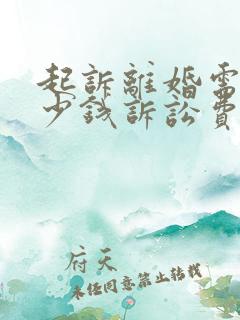 起訴離婚需
少錢訴訟費
府天
未經同意禁止转載